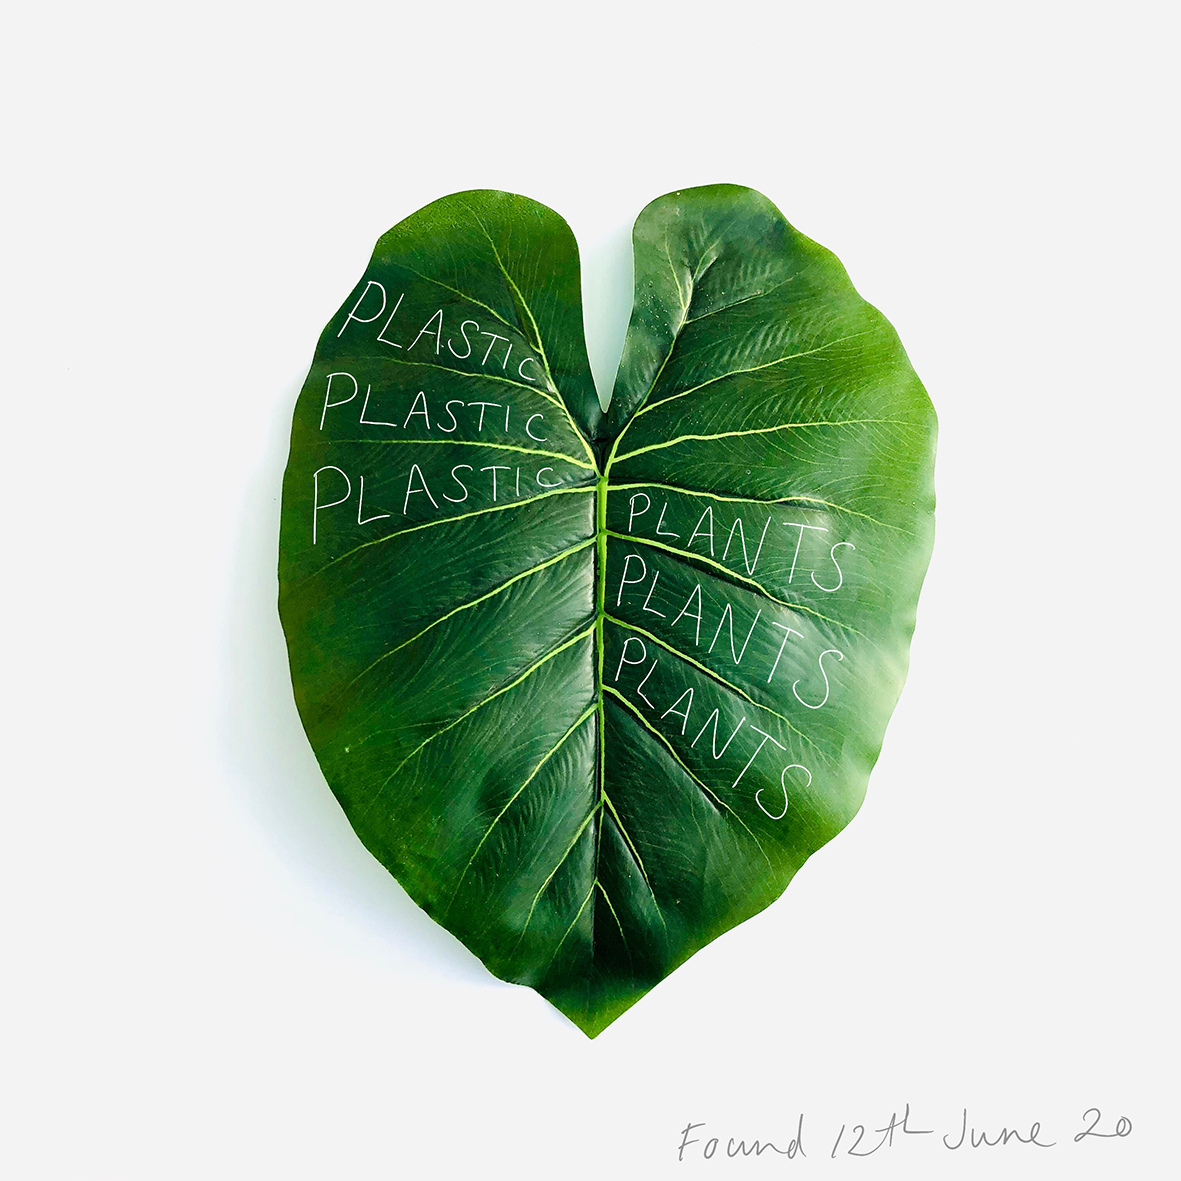 PLASTIC
PLASTIC
PLASTIC
PLANTS
PLANTS
PLANTS
Found 12th June 20